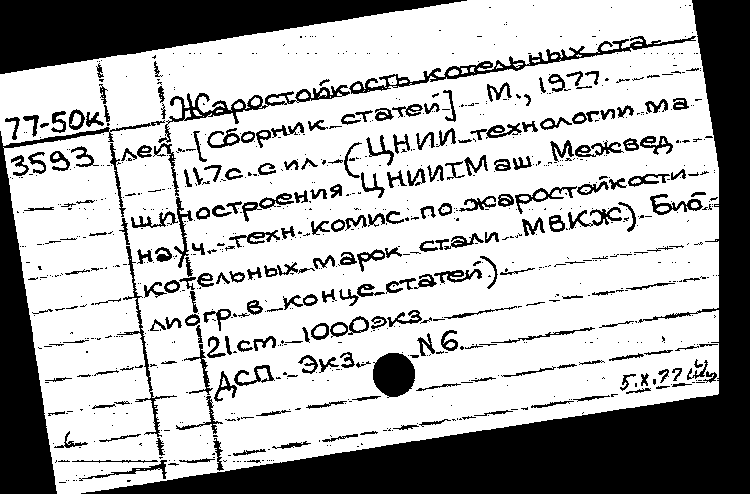 77-50к
3593
Жаростойкость котельных ста-
лей. [Сборник статей] М., 1977.
117с. с ил. (ЦНИИ технологии ма
шиностроения ЦНИИТМаш. Межвед
науч.-техн. комис. по жаростойкости
котельных марок стали МВКЖ). Биб-
лиогр. в конце статей).
21см. 1000экз.
ДСП. Экз. N6.
5.X.77